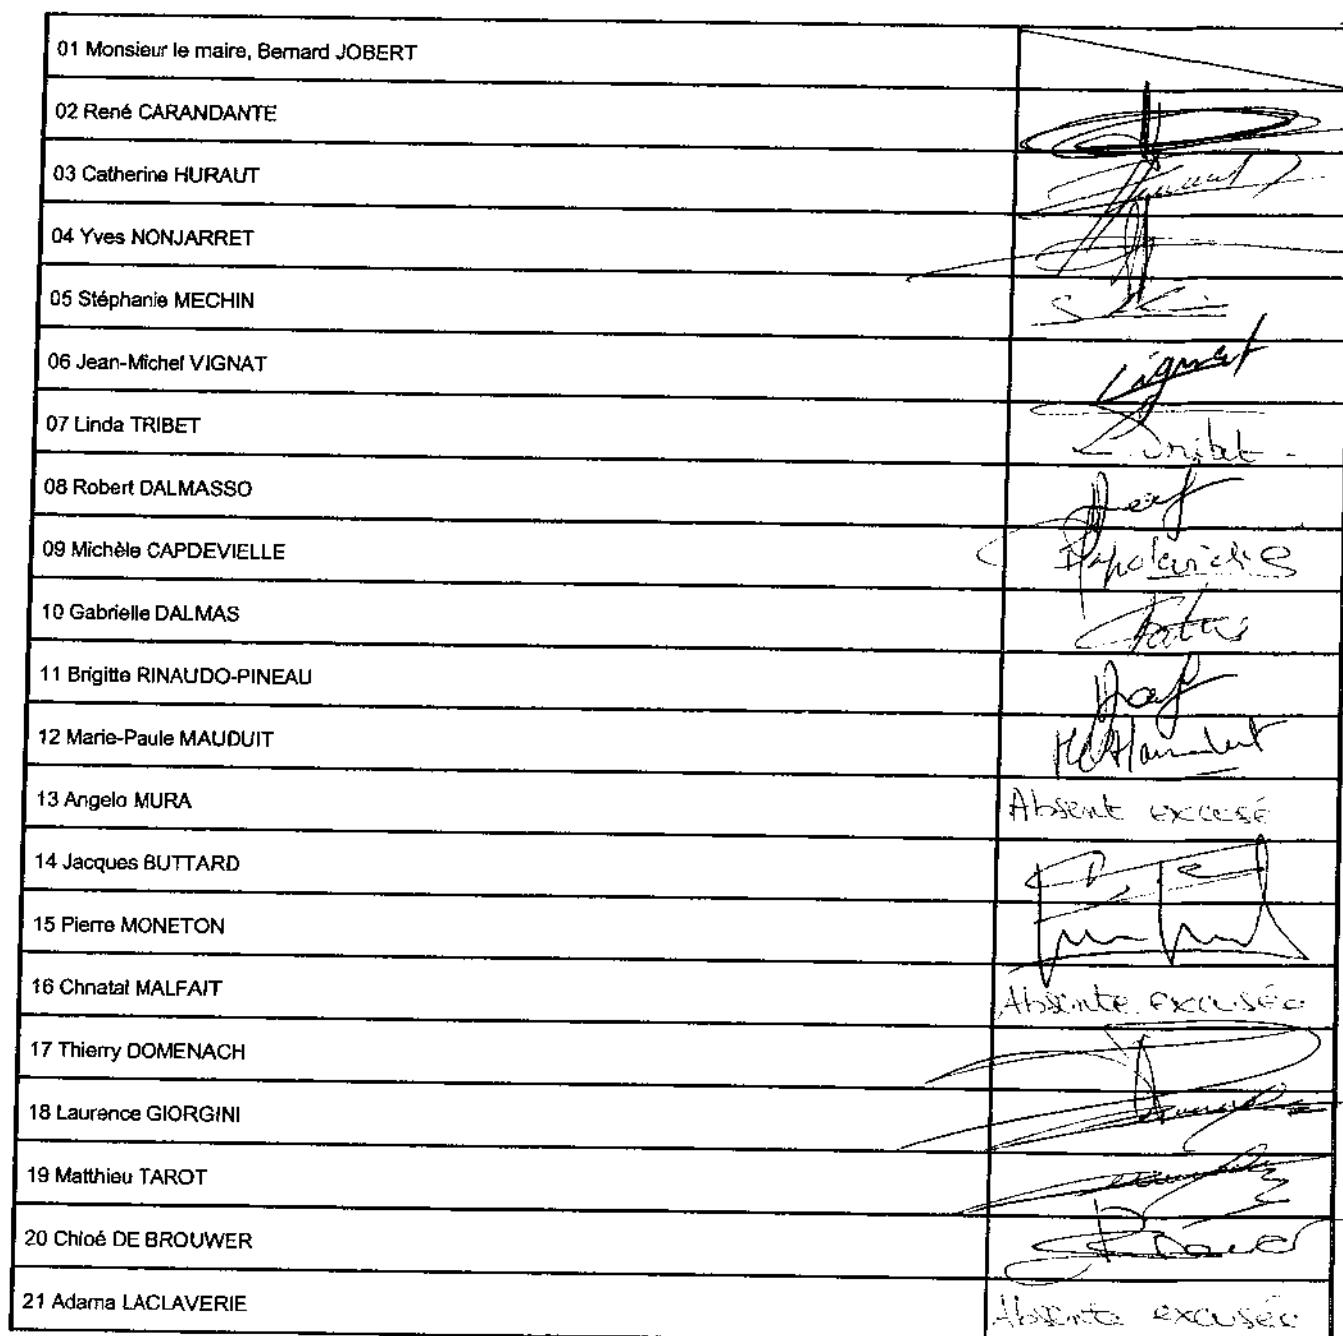 01 Monsieur le maire, Bernard JOBERT
02 René CARANDANTE
03 Catherine HURAUT
04 Yves NONJARRET
05 Stéphanie MECHIN
06 Jean-Michel VIGNAT
Vignat
07 Linda TRIBET
L. Tribet
08 Robert DALMASSO
09 Michèle CAPDEVIELLE
10 Gabrielle DALMAS
11 Brigitte RINAUDO-PINEAU
12 Marie-Paule MAUDUIT
13 Angelo MURA
Absent excusé
14 Jacques BUTTARD
15 Pierre MONETON
16 Chnatal MALFAIT
Absente excusée
17 Thierry DOMENACH
18 Laurence GIORGINI
19 Matthieu TAROT
20 Chloé DE BROUWER
21 Adama LACLAVERIE
Absente excusée